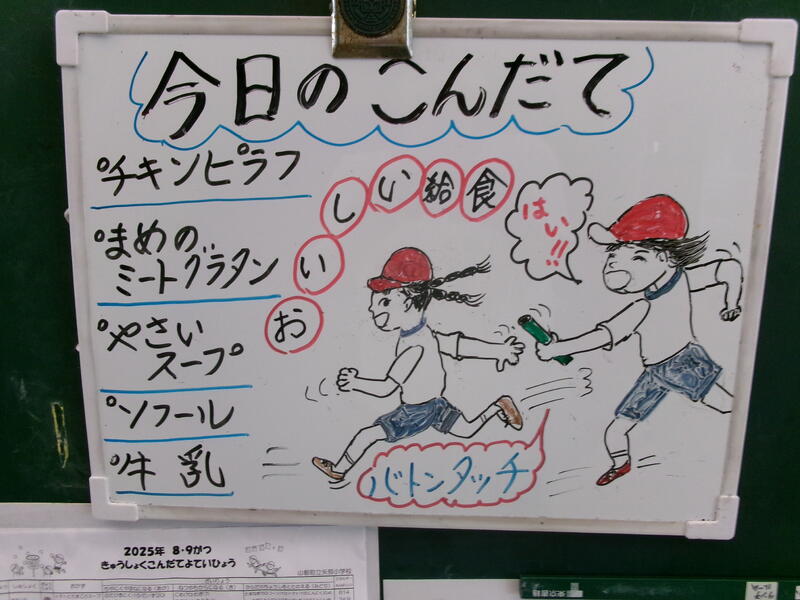 今日のこんだて
°チキンピラフ
°まめの
ミートグラタン
°やさい
スープ
°ソフール
°牛乳
おいしい給食
はい!!
バトンタッチ
2025年 8・9がつ
きゅうしょくこんだてよていひょう